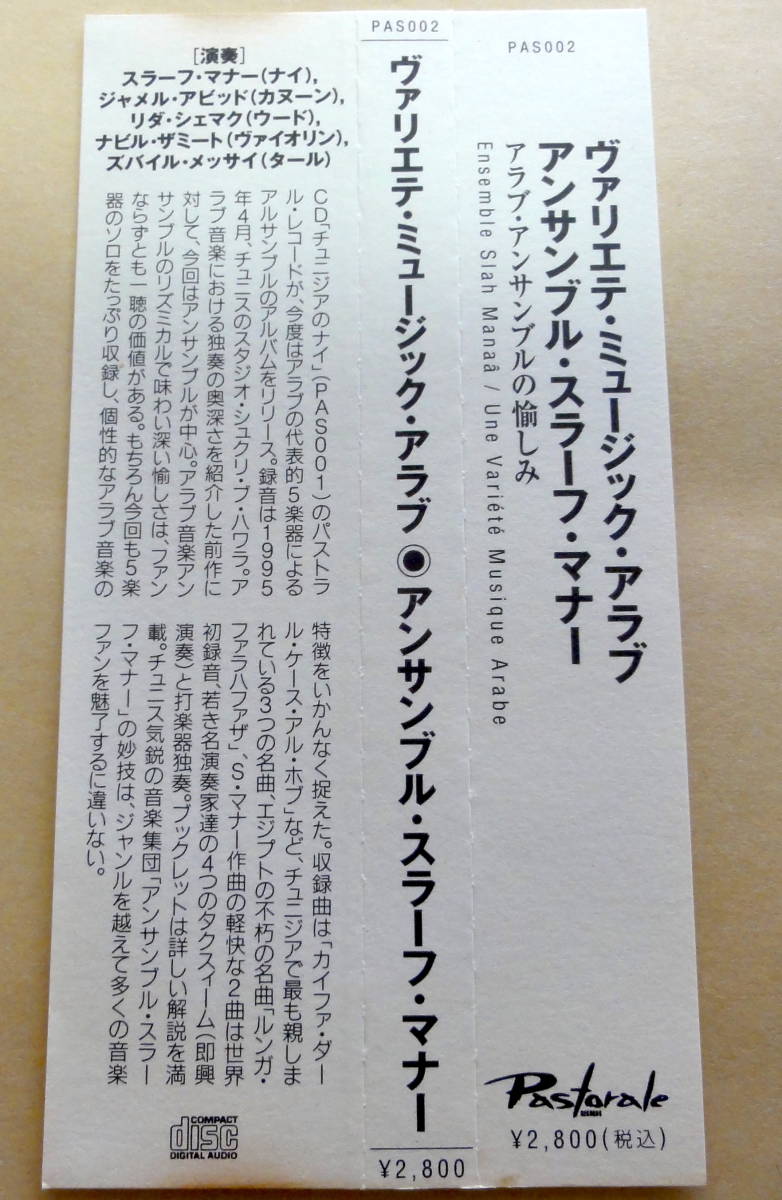 PAS002
ヴァリエテ・ミュージック・アラブ
アンサンブル・スラーフ・マナー
アラブ・アンサンブルの愉しみ
Ensemble Slah Manaâ / Une Variété Musique Arabe
Pastorale
¥2,800(税込)
PAS002
ヴァリエテ・ミュージック・アラブ◉アンサンブル・スラーフ・マナー
¥2,800
[演奏]
スラーフ・マナー(ナイ),
ジャメル・アビッド(カヌーン),
リダ・シェマク(ウード),
ナビル・ザミート(ヴァイオリン),
ズバイル・メッサイ(タール)
CD「チュニジアのナイ」(PAS001)のパストラ
ル・レコードが、今度はアラブの代表的5楽器による
アルサンブルのアルバムをリリース。録音は1995
年4月、チュニスのスタジオ・シュクリ・ブ・ハワラ。ア
ラブ音楽における独奏の奥深さを紹介した前作に
対して、今回はアンサンブルが中心。アラブ音楽アン
サンブルのリズミカルで味わい深い愉しさは、ファン
ならずとも一聴の価値がある。もちろん今回も5楽
器のソロをたっぷり収録し、個性的なアラブ音楽の
特徴をいかんなく捉えた。収録曲は「カイファ・ダー
ル・ケース・アル・ホブ」など、チュニジアで最も親しま
れている3つの名曲、エジプトの不朽の名曲「ルンガ・
ファラハファザ」、S・マナー作曲の軽快な2曲は世界
初録音、若き名演奏家達の4つのタクスィーム(即興
演奏)と打楽器独奏。ブックレットは詳しい解説を満
載。チュニス気鋭の音楽集団「アンサンブル・スラー
フ・マナー」の妙技は、ジャンルを越えて多くの音楽
ファンを魅了するに違いない。
COMPACT
disc
DIGITAL AUDIO